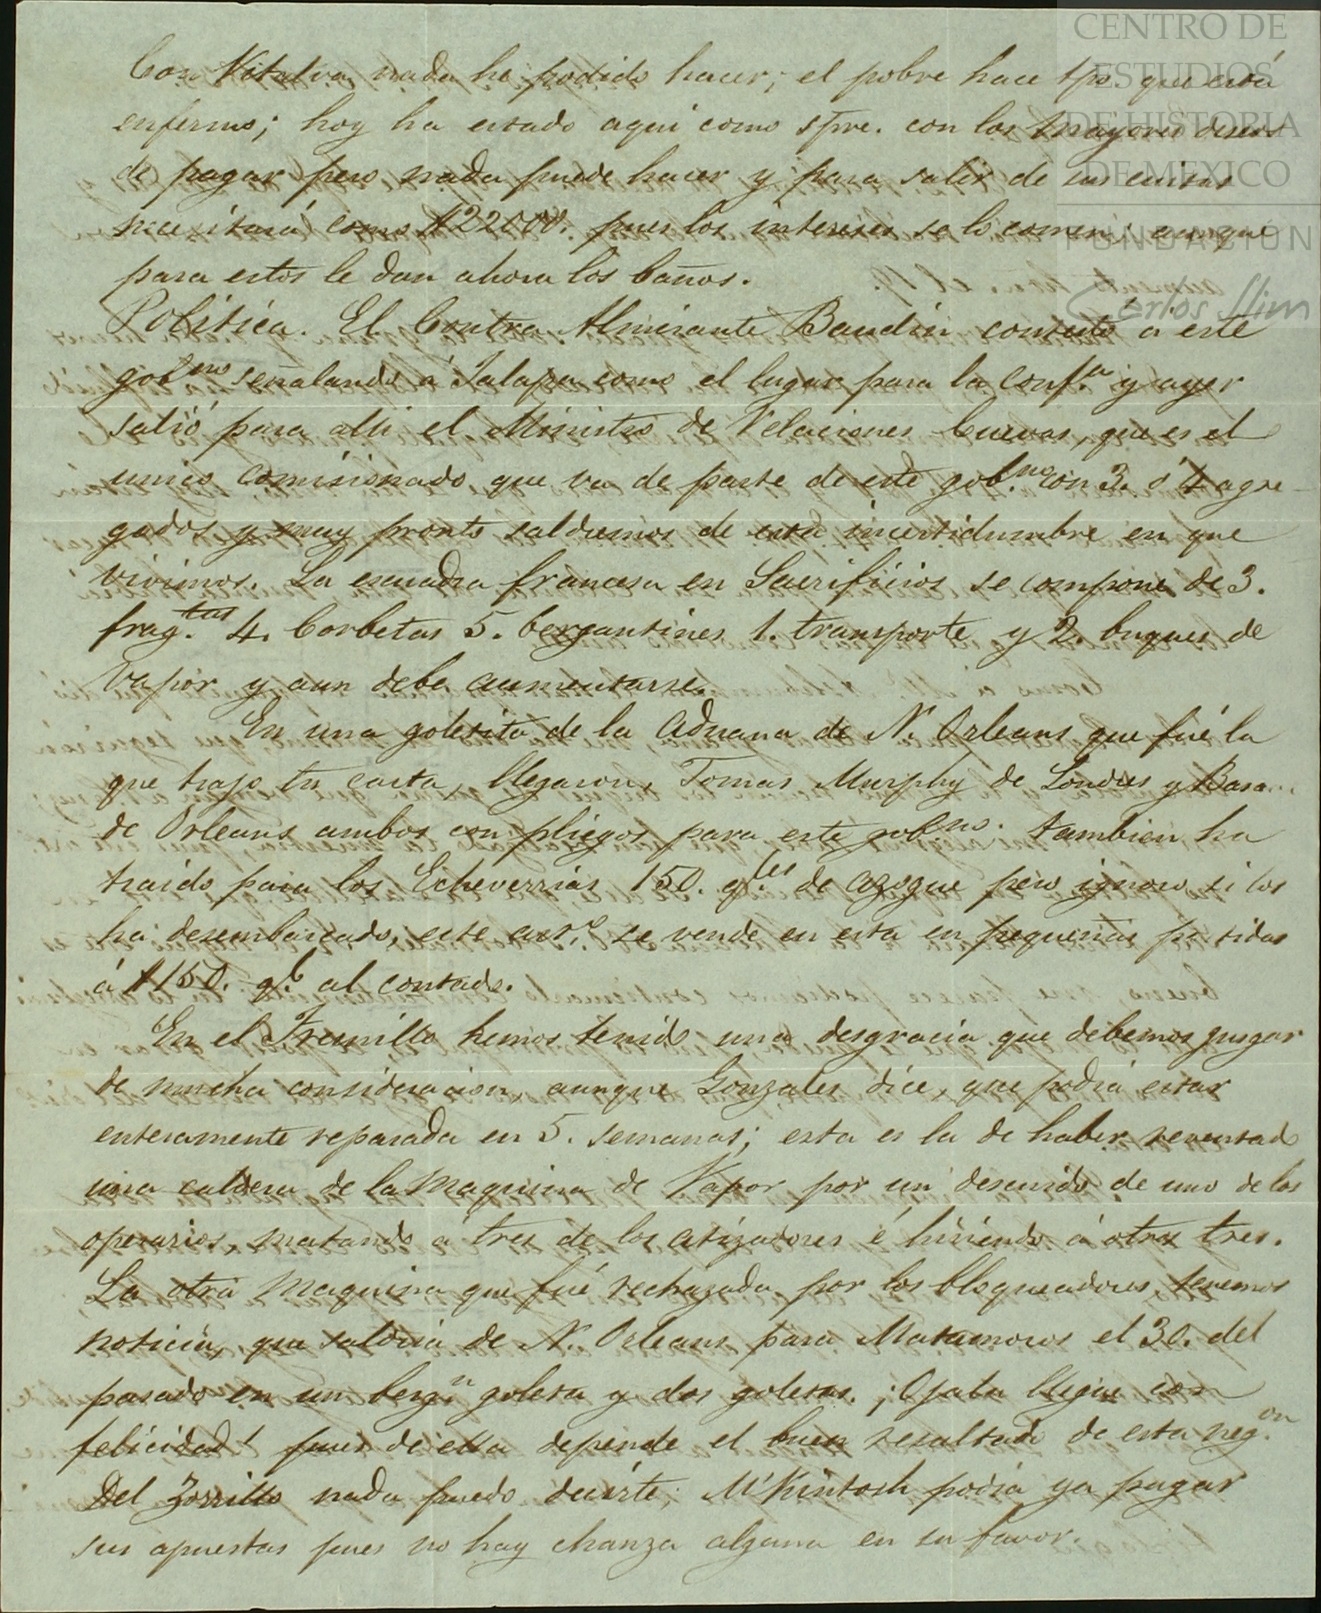 CENTRO DE
ESTUDIOS
DE HISTORIA
DE MEXICO
FUNDACION
Carlos Slim
Con Vitalva nada he podido hacer; el pobre hace tpo. que está
enfermo; hoy ha estado aqui como spre. con los mayores deseos
de pagar pero nada puede hacer y para salir de sus cuitas
necesitará como $22000. pues los intereses se lo comen; aunque
para estos le dan ahora los baños.
Politica. El Contra Almirante Baudin contestó a este
gobno señalando á Jalapa como el lugar para la confa. y ayer
salió para alli el Ministro de Relaciones Cuevas, que es el
unico comisionado que va de parte de este gobno. con 3. ó 4 agre
gados y muy pronto saldremos de esta incertidumbre en que
vivimos. La escuadra francesa en Sacrificios se compone de 3.
fragtas. 4. Corbetas 5. bergantines 1. transporte y 2. buques de
Vapor y aun debe aumentarse.
En una goletita de la Aduana de N. Orleans que fué la
que trajo tu carta, llegaron Tomas Murphy de Londres y
de Orleans ambos con pliegos para este gobno. tambien ha
traido para los Echeverrias 150. qles. de azogue pero ignoro si los
ha desembarcado; este arto. se vende en esta en pequeñas partidas
á $150. ql. al contado.
En el Fresnillo hemos tenido una desgracia que debemos jusgar
de mucha consideracion, aunque Gonzales dice, que podrá estar
enteramente reparada en 5. semanas; esta es la de haber reventado
una caldera de la Maquina de Vapor por un descuido de uno de los
operarios, matando á tres de los atizadores é hiriendo á otros tres.
La otra Maquina que fué rechazada por los bloqueadores, tenemos
noticia, que saldria de N. Orleans para Matamoros el 30. del
pasado en un bergn. goleta y dos goletas. ¡Ojala llegue con
felicidad! pues de ella depende el buen resultado de esta negon.
Del Zorrillo nada puedo decirte; M'Kintosh podrá ya pagar
sus apuestas pues no hay chanza alguna en su favor.